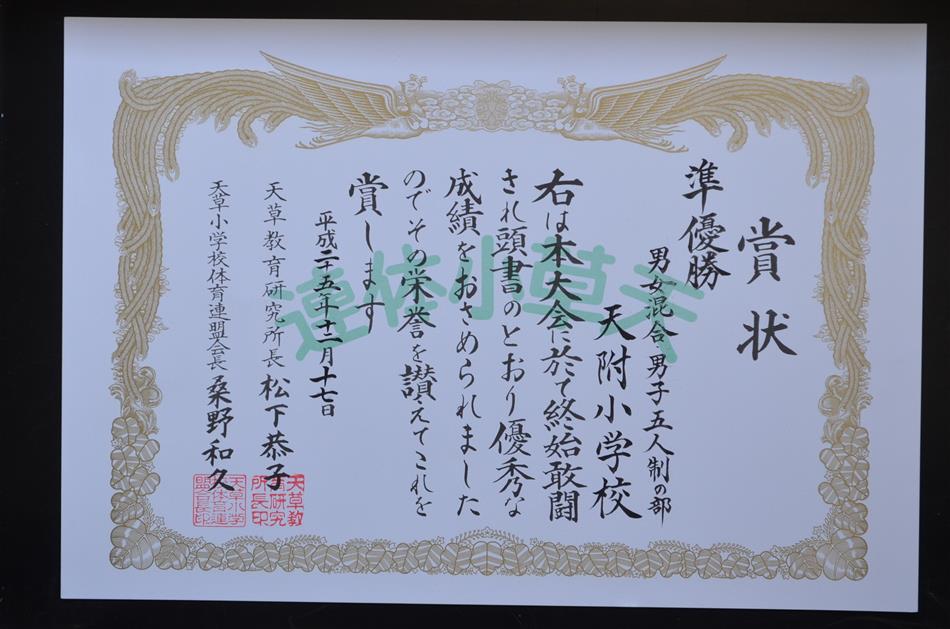 賞状
準優勝
男女混合・男子五人制の部
天附小学校
右は本大会に於て終始敢闘
され頭書のとおり優秀な
成績をおさめられました
のでその栄誉を讃えてこれを
賞します
平成二十五年十二月十七日
天草教育研究所長 松下恭子
天草小学校体育連盟会長 桑野和久
天草小体連
天草教
育研究
所長印
天草小学
校体育連
盟会長印